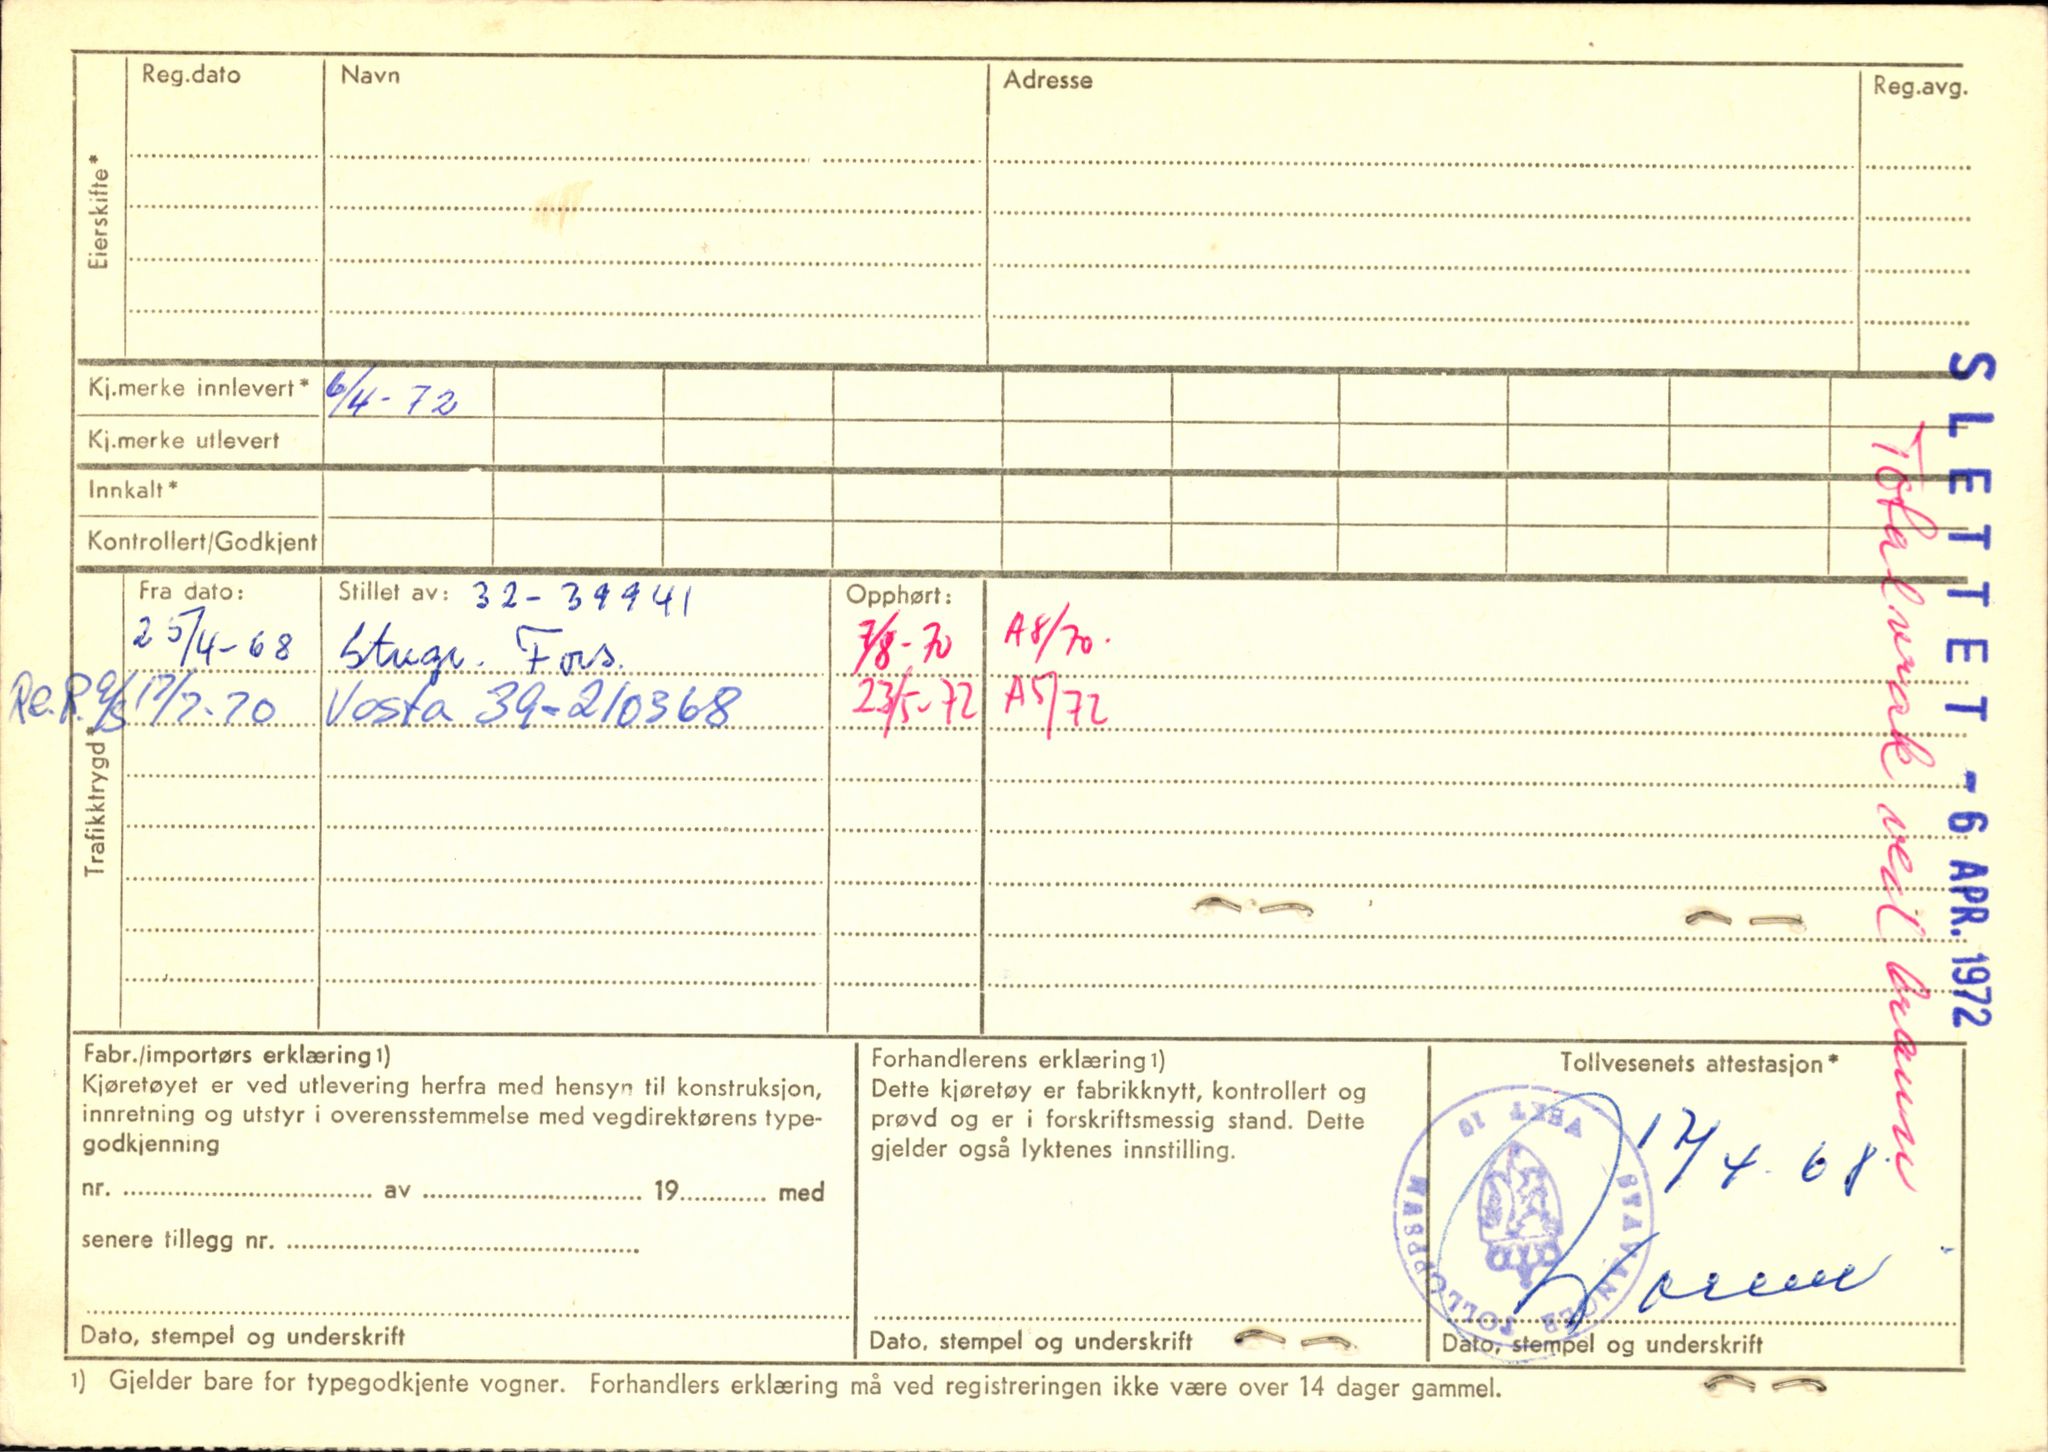 Reg.dato Navn Adresse Reg.avg.
Eierskifte*
Kj.merke innlevert* 6/4-72
Kj.merke utlevert
Innkalt*
Kontrollert/Godkjent
Trafikktrygd*
Fra dato: Stillet av: 32-39941 Opphørt:
25/4-68 Stugr. Fors. 7/8-70 A8/70.
17/7-70 Vesta 39-210368 23/5-72 A5/72
SLETTET -6 APR. 1972
Totalvrak ved brann
Fabr./importørs erklæring1)
Kjøretøyet er ved utlevering herfra med hensyn til konstruksjon,
innretning og utstyr i overensstemmelse med vegdirektørens type-
godkjenning
nr. av 19 med
senere tillegg nr.
Dato, stempel og underskrift
Forhandlerens erklæring1)
Dette kjøretøy er fabrikknytt, kontrollert og
prøvd og er i forskriftsmessig stand. Dette
gjelder også lyktenes innstilling.
Dato, stempel og underskrift
Tollvesenets attestasjon*
17/4-68
STAVANGER TOLLOPPSYN
VEKT 10
Dato, stempel og underskrift
1) Gjelder bare for typegodkjente vogner. Forhandlers erklæring må ved registreringen ikke være over 14 dager gammel.